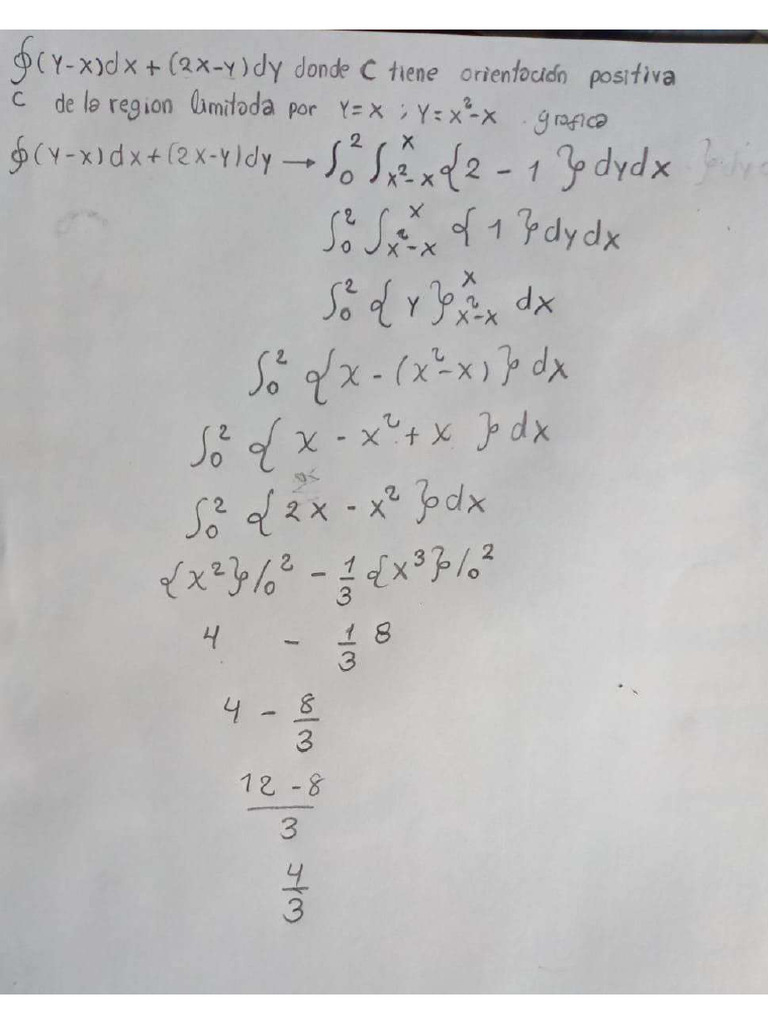 ∮(Y-X)dx + (2X-Y)dy donde C tiene orientación positiva
C de la region limitada por Y=X ; Y=X²-X . grafica
∮(Y-X)dx+(2X-Y)dy → ∫₀² ∫_{X²-X}^{X} {2 - 1} dydx
∫₀² ∫_{X²-X}^{X} {1} dydx
∫₀² {Y}_{X²-X}^{X} dx
∫₀² {X - (X²-X)} dx
∫₀² {X - X² + X} dx
∫₀² {2X - X²} dx
{X²}/₀² - 1/3 {X³}/₀²
4 - 1/3 8
4 - 8/3
12 - 8 / 3
4/3